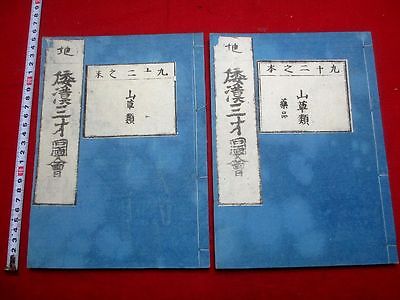 地
倭漢三才圖會
九十二之末
山草類
地
倭漢三才圖會
九十二之本
山草類
藥品